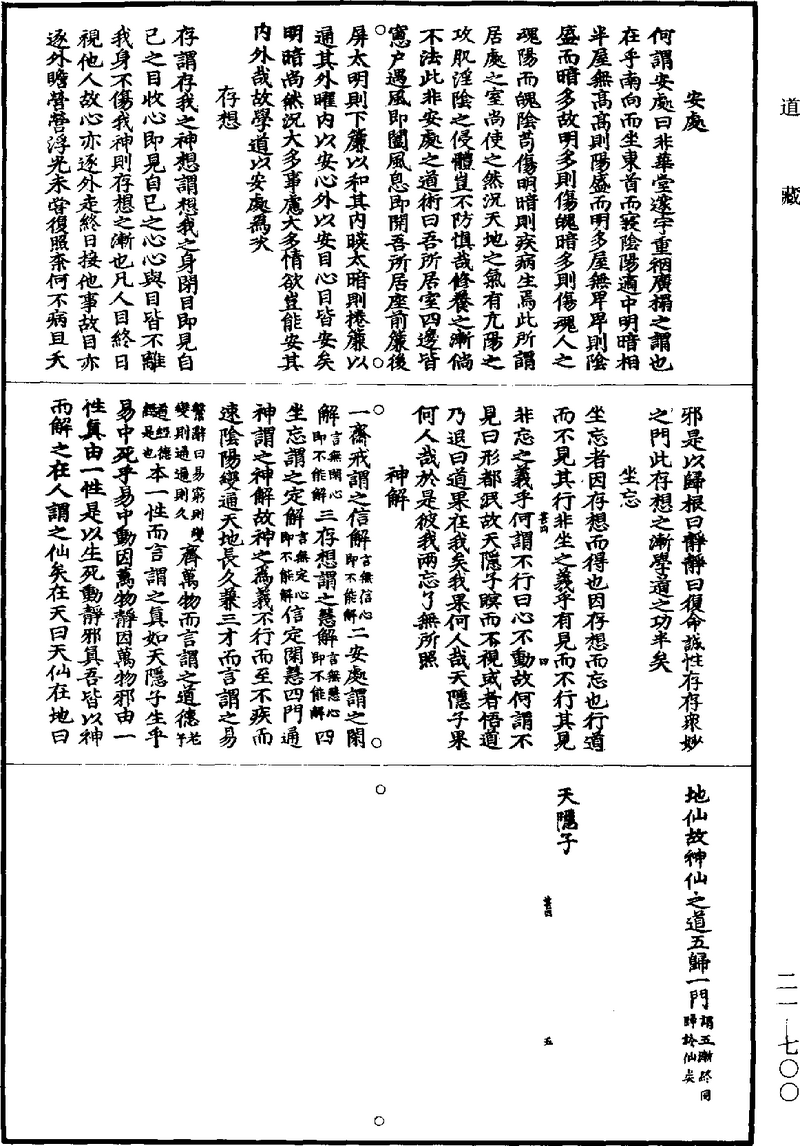 道藏
安處
何謂安處曰非華堂邃宇重裀廣榻之謂也
在乎南向而坐東首而寢陰陽適中明暗相
半屋無高高則陽盛而明多屋無卑卑則陰
盛而暗多故明多則傷魄暗多則傷魂人之
魂陽而魄陰苟傷明暗則疾病生焉此所謂
居處之室尚使之然況天地之氣有亢陽之
攻肌淫陰之侵體豈不防慎哉修養之漸倘
不法此非安處之道術曰吾所居室四邊皆
窻户遇風即闔風息即開吾所居座前簾後
屏太明則下簾以和其内暎太暗則捲簾以
通其外曜内以安心外以安目心目皆安矣
明暗尚然況大多事慮大多情欲豈能安其
内外哉故學道以安處為次
存想
存謂存我之神想謂想我之身閉目即見自
己之目收心即見自己之心心與目皆不離
我身不傷我神則存想之漸也凡人目終日
視他人故心亦逐外走終日接他事故目亦
逐外瞻營營浮光未甞復照柰何不病且夭
邪是以歸根曰靜靜曰復命誠性存存衆妙
之門此存想之漸學道之功半矣
坐忘
坐忘者因存想而得也因存想而忘也行道
而不見其行非坐之義乎有見而不行其見
非忘之義乎何謂不行曰心不動故何謂不
甚四
四
見曰形都泯故天隱子瞑而不視或者悟道
乃退曰道果在我矣我果何人哉天隱子果
何人哉於是彼我兩忘了無所照
神解
一齋戒謂之信解言無信心即不能解二安處謂之閑
解言無閑心即不能解三存想謂之慧解言無慧心即不能解四
坐忘謂之定解言無定心即不能解信定閑慧四門通
神謂之神解故神之為義不行而至不疾而
速陰陽變通天地長久兼三才而言謂之易
繫辭曰易窮則變變則通通則久齊萬物而言謂之道德老子
道經德經是也本一性而言謂之真如天隱子生乎
易中死乎易中動因萬物靜因萬物邪由一
性真由一性是以生死動靜邪真吾皆以神
而解之在人謂之仙矣在天曰天仙在地曰
地仙故神仙之道五歸一門謂五漸終同歸於仙矣
天隱子
甚四
五
二一—七〇〇